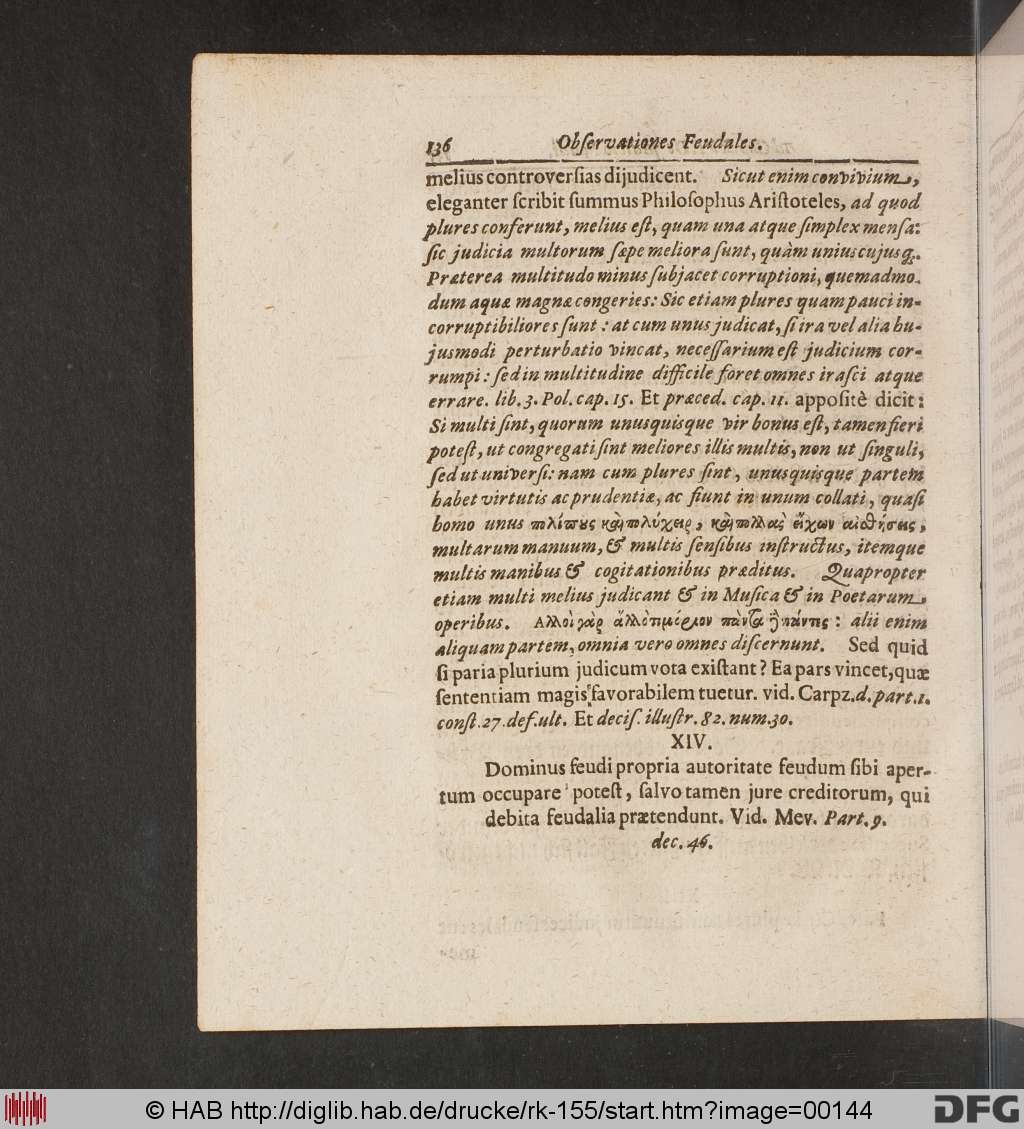 136 Obſervationes Feudales.
melius controverſias dijudicent. Sicut enim convivium,
eleganter ſcribit ſummus Philoſophus Ariſtoteles, ad quod
plures conferunt, melius eſt, quam una atque ſimplex menſa:
ſic judicia multorum ſæpe meliora ſunt, quàm unius cujusq;.
Præterea multitudo minus ſubjacet corruptioni, quemadmo-
dum aquæ magnæ congeries: Sic etiam plures quam pauci in-
corruptibiliores ſunt: at cum unus judicat, ſi ira vel alia hu-
jusmodi perturbatio vincat, neceſſarium eſt judicium cor-
rumpi: ſed in multitudine difficile foret omnes iraſci atque
errare. lib. 3. Pol. cap. 15. Et præced. cap. 11. appoſitè dicit:
Si multi ſint, quorum unusquisque vir bonus eſt, tamen fieri
poteſt, ut congregati ſint meliores illis multis, non ut ſinguli,
ſed ut univerſi: nam cum plures ſint, unusquisque partem
habet virtutis ac prudentiæ, ac fiunt in unum collati, quaſi
homo unus πολύπους καὶ πολύχειρ, καὶ πολλὰς ἔχων αἰσθήσεις,
multarum manuum, & multis ſenſibus inſtructus, itemque
multis manibus & cogitationibus præditus. Quapropter
etiam multi melius judicant & in Muſica & in Poetarum
operibus. Αλλοι γὰρ ἄλλό τι μέριον πάντα ἢ πάντες: alii enim
aliquam partem, omnia vero omnes diſcernunt. Sed quid
ſi paria plurium judicum vota exiſtant? Ea pars vincet, quæ
ſententiam magis favorabilem tuetur. vid. Carpz. d. part. 1.
conſt. 27. def. ult. Et deciſ. illuſtr. 82. num. 30.
XIV.
Dominus feudi propria autoritate feudum ſibi aper-
tum occupare poteſt, ſalvo tamen jure creditorum, qui
debita feudalia prætendunt. Vid. Mev. Part. 9.
dec. 46.
© HAB http://diglib.hab.de/drucke/rk-155/start.htm?image=00144
DFG